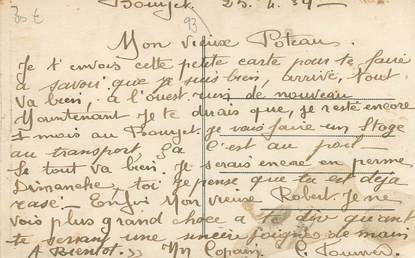 30 €
93
Bourget. 25. 4. 39 -
Mon vieux Poteau.
Je t'envois cette petite carte pour te faire
a savoir que je suis bien, arrivé, tout
va bien, a l'ouest rien de nouveau
Maintenant Je te dirais que, je reste encore
1 mois au Bourget je vais faire un stage
au transport. Sa c'est au poil
Se tout va bien. Je serais encore en perme
Dimanche, toi je pense que tu est déjà
rasé - Enfin Mon vieux Robert. Je ne
vois plus grand chose a te dire quant
te serrant une sincère poignée de main
A Bientot. Un Copain